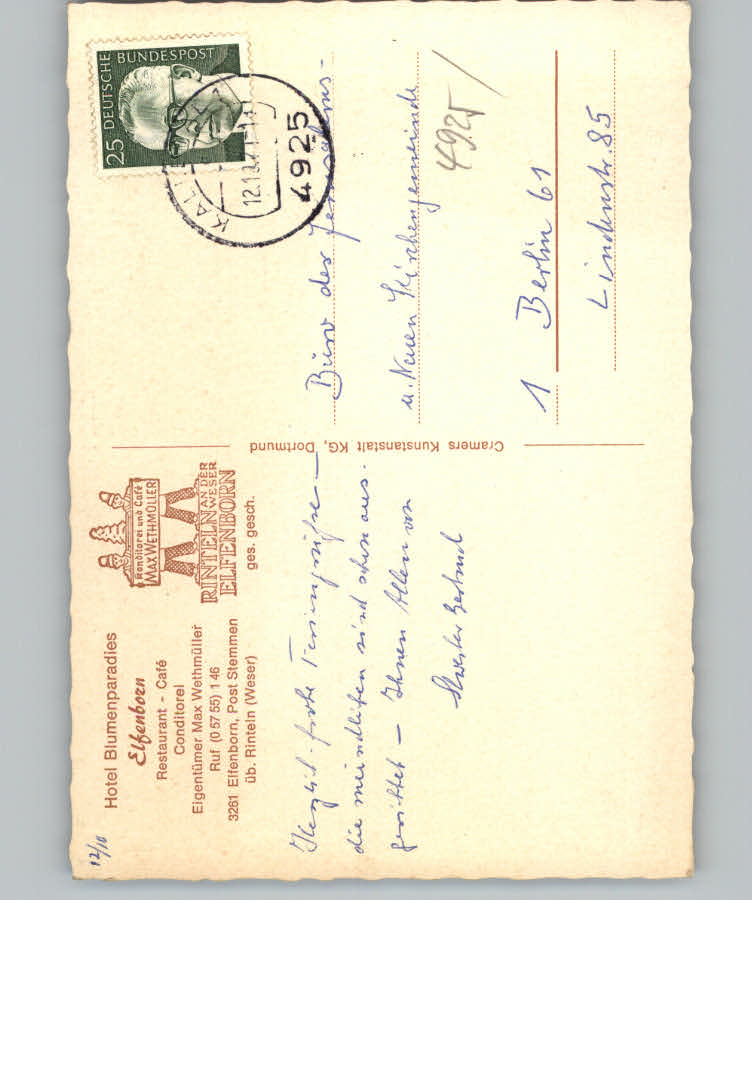 12/10
Hotel Blumenparadies
Elfenborn
Restaurant - Café
Conditorei
Eigentümer Max Wethmüller
Ruf (0 57 55) 1 46
3261 Elfenborn, Post Stemmen
üb. Rinteln (Weser)
Konditorei und Café
MAX WETHMÜLLER
RINTELN AN DER WESER
ELFENBORN
ges. gesch.
Herzlich-frohe Feriengrüße –
die mündlichen sind schon aus-
gerichtet – Ihnen Allen von
Schwester Gertrud
Cramers Kunstanstalt KG, Dortmund
25 DEUTSCHE BUNDESPOST
KALL
12.10.
4925
Büro der Jerusalems-
u. Neuen Kirchengemeinde
4925
1 Berlin 61
Lindenstr. 85